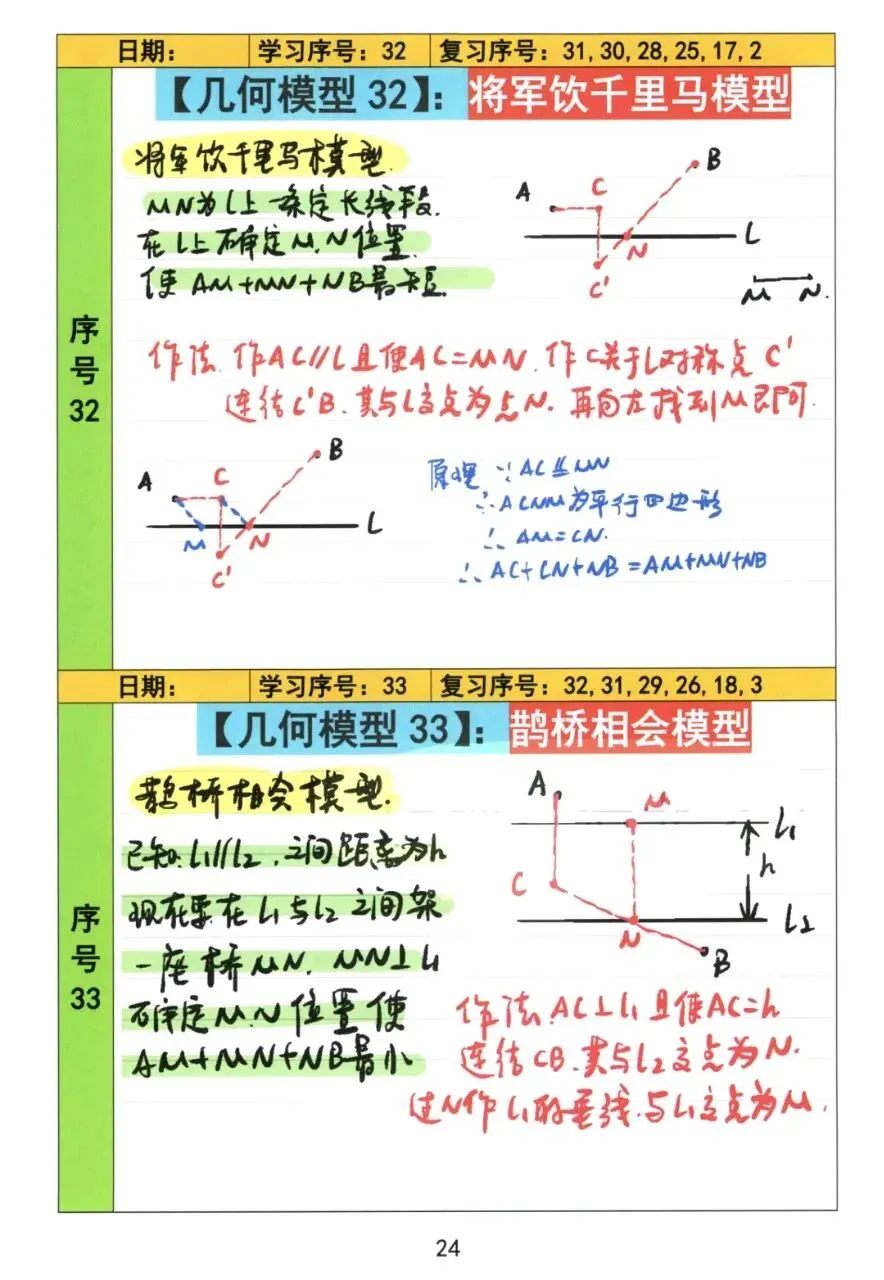 日期： 学习序号：32 复习序号：31,30,28,25,17,2
【几何模型 32】：将军饮千里马模型
序号32
将军饮千里马模型.
MN为L上一条定长线段.
在L上确定M.N位置.
使AM+MN+NB最短.
A
C
B
N
L
C'
M N.
作法.作AC//L且使AC=MN.作C关于L对称点C'
连结C'B.其与L交点为点N.再向左找到M即可.
A
C
B
M
N
L
C'
原理 ∵AC⫽MN
∴ACNM为平行四边形
∴AM=CN.
∴AC+CN+NB=AM+MN+NB
日期： 学习序号：33 复习序号：32,31,29,26,18,3
【几何模型 33】：鹊桥相会模型
序号33
鹊桥相会模型.
已知:L1//L2,之间距离为h
现在要在L1与L2之间架
一座桥MN.MN⊥L1
确定M.N位置使
AM+MN+NB最小
A
M
L1
h
C
N
L2
B
作法.AC⊥L1且使AC=h
连结CB.其与L2交点为N.
过N作L1的垂线.与L1交点为M.
24